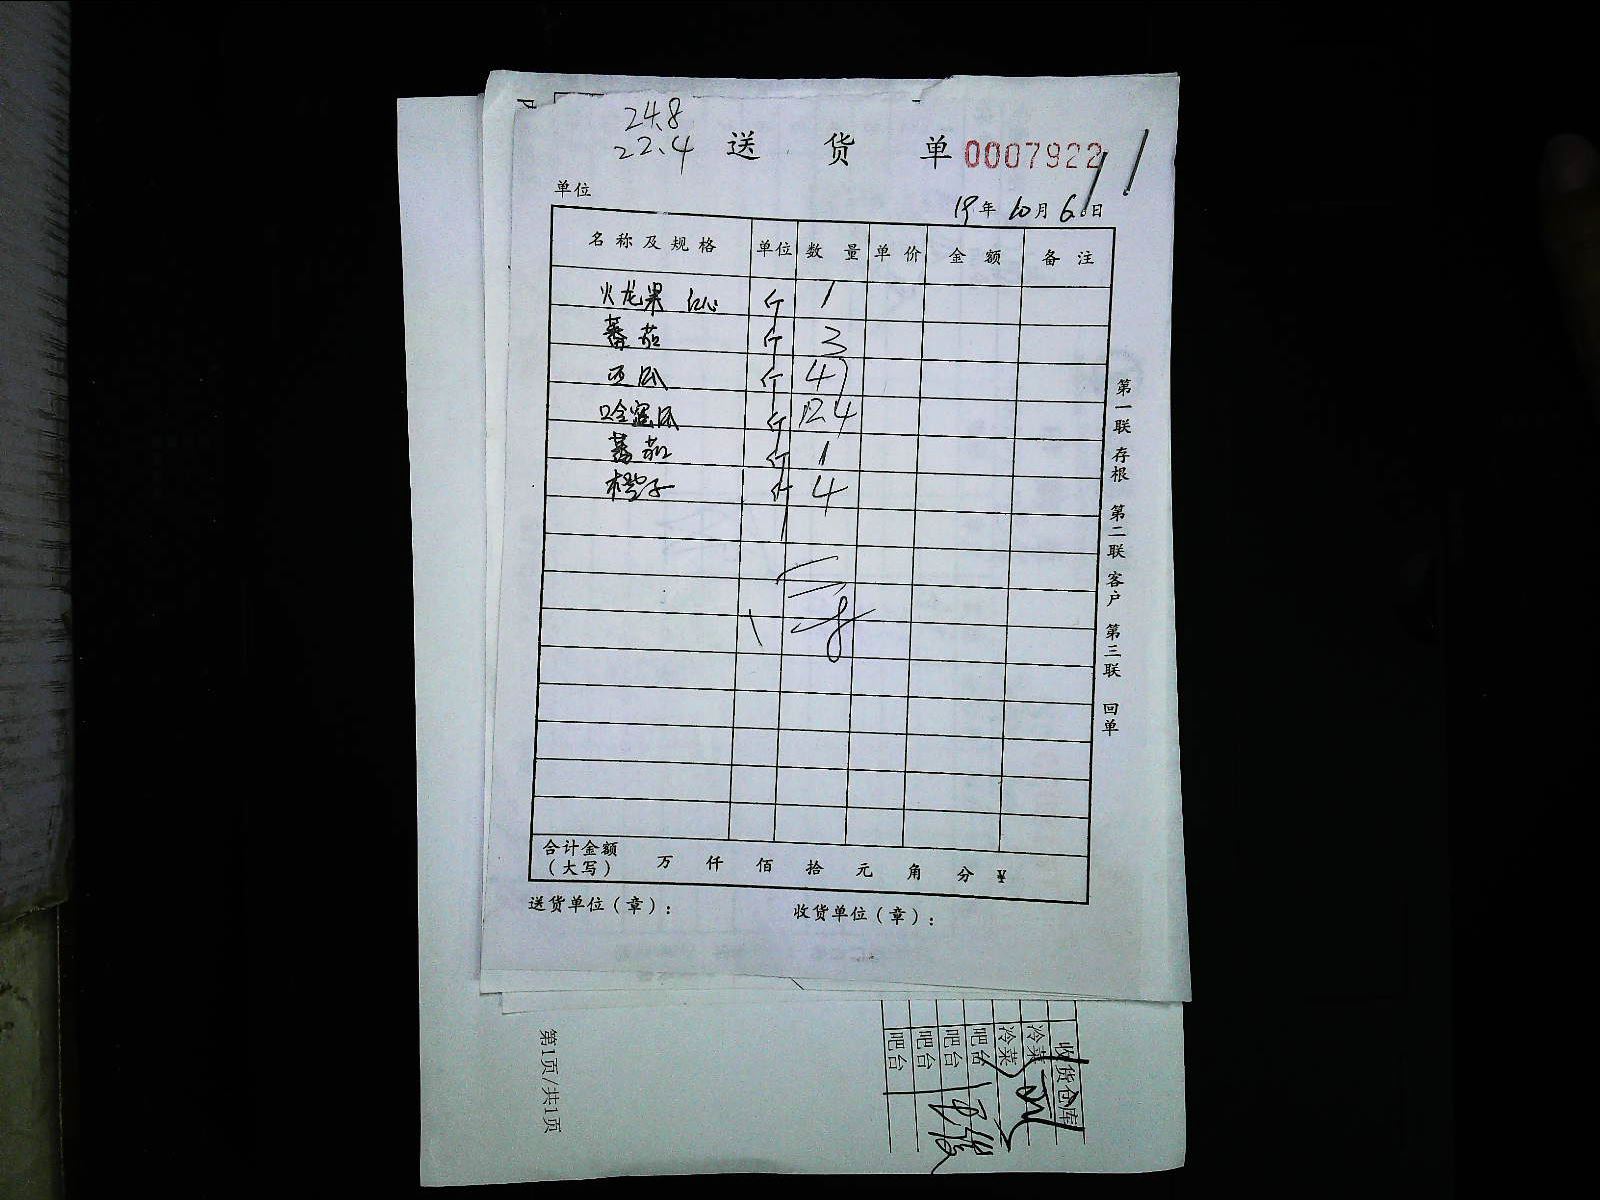 24.8
22.4
送 货 单 0007922
单位
19年 10月 6日
名称及规格 单位 数量 单价 金额 备注
火龙果 红心 斤 1
蕃茄 斤 3
西瓜 斤 47
哈密瓜 斤 12.4
蕃茄 斤 1
橙子 斤 4
第一联 存根 第二联 客户 第三联 回单
合计金额
（大写） 万 仟 佰 拾 元 角 分 ¥
送货单位（章）： 收货单位（章）：
收货仓库
冷菜
冷菜
吧台
吧台
吧台
吧台
第1页/共1页